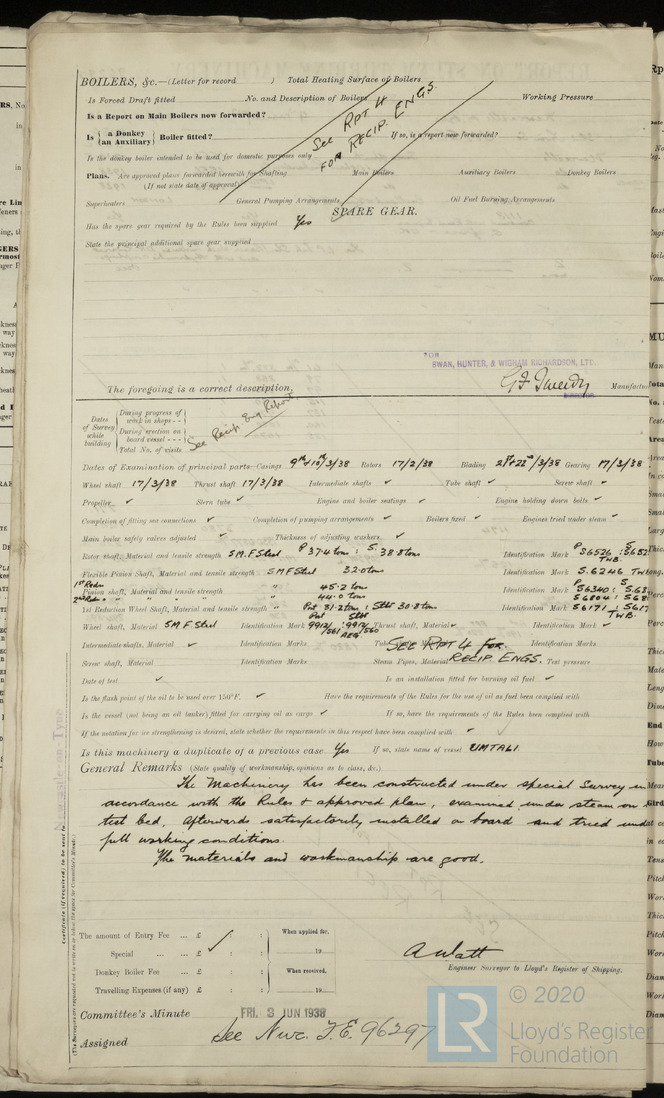 BOILERS, &c.—(Letter for record ) Total Heating Surface of Boilers
Is Forced Draft fitted No. and Description of Boilers Working Pressure
Is a Report on Main Boilers now forwarded?
See RPT 4
FOR RECIP. ENGS.
Is { a Donkey / an Auxiliary } Boiler fitted? If so, is a report now forwarded?
Is the donkey boiler intended to be used for domestic purposes only
Plans. Are approved plans forwarded herewith for Shafting Main Boilers Auxiliary Boilers Donkey Boilers
(If not state date of approval)
Superheaters General Pumping Arrangements Oil Fuel Burning Arrangements
SPARE GEAR.
Has the spare gear required by the Rules been supplied Yes
State the principal additional spare gear supplied
FOR
SWAN, HUNTER, & WIGHAM RICHARDSON, LTD
The foregoing is a correct description, G F Tweedy Manufactu
DIRECTOR
Dates of Survey while building
During progress of work in shops - -
During erection on board vessel - - -
Total No. of visits
See Recip Eng Report
Dates of Examination of principal parts—Casings 9th & 10th/3/38 Rotors 17/2/38 Blading 21st & 22nd/3/38 Gearing 17/3/38
Wheel shaft 17/3/38 Thrust shaft 17/3/38 Intermediate shafts ✓ Tube shaft ✓ Screw shaft ✓
Propeller ✓ Stern tube ✓ Engine and boiler seatings ✓ Engine holding down bolts ✓
Completion of fitting sea connections ✓ Completion of pumping arrangements ✓ Boilers fixed ✓ Engines tried under steam ✓
Main boiler safety valves adjusted ✓ Thickness of adjusting washers ✓
Rotor shaft, Material and tensile strength S.M.F Steel P 37.4 tons : S. 38.8 tons Identification Mark P S6526 : S
TWB.
Flexible Pinion Shaft, Material and tensile strength SMF Steel 32.0 tons Identification Mark S.6246 TWB
1st Redn
Pinion shaft, Material and tensile strength " 45.2 tons Identification Mark P S6340 : S
2nd Redn " " " 44.0 tons S6804 :
1st Reduction Wheel Shaft, Material and tensile strength " Port 31.2 tons : Stbd 30.8 tons Identification Mark S6171 :
TWB.
Wheel shaft, Material S M F. Steel Identification Mark Port Stbd 9912/561 : 9912/560 AEG Thrust shaft, Material ✓ Identification Mark ✓
Intermediate shafts, Material ✓ Identification Marks Tube Identification Marks
SEE RPT 4 FOR
RECIP. ENGS.
Screw shaft, Material Identification Marks Steam Pipes, Material Test pressure
Date of test ✓ Is an installation fitted for burning oil fuel ✓
Is the flash point of the oil to be used over 150°F. ✓ Have the requirements of the Rules for the use of oil as fuel been complied with
Is the vessel (not being an oil tanker) fitted for carrying oil as cargo ✓ If so, have the requirements of the Rules been complied with
If the notation for ice strengthening is desired, state whether the requirements in this respect have been complied with ✓
Is this machinery a duplicate of a previous case Yes If so, state name of vessel UMTALI.
General Remarks (State quality of workmanship, opinions as to class, &c.)
The Machinery has been constructed under special Survey in
accordance with the Rules & approved plan, examined under steam on
test bed, afterwards satisfactorily installed on board and tried under
full working conditions.
The materials and workmanship are good.
Certificate (if required) to be sent to
The amount of Entry Fee ... £ : : When applied for,
Special ... ... £ : : 19
Donkey Boiler Fee £ : : When received,
Travelling Expenses (if any) £ : : 19
A Watt
Engineer Surveyor to Lloyd's Register of Shipping.
Committee's Minute FRI. 3 JUN 1938
Assigned See Nwc. F.E. 96297
LR © 2020
Lloyd's Register
Foundation